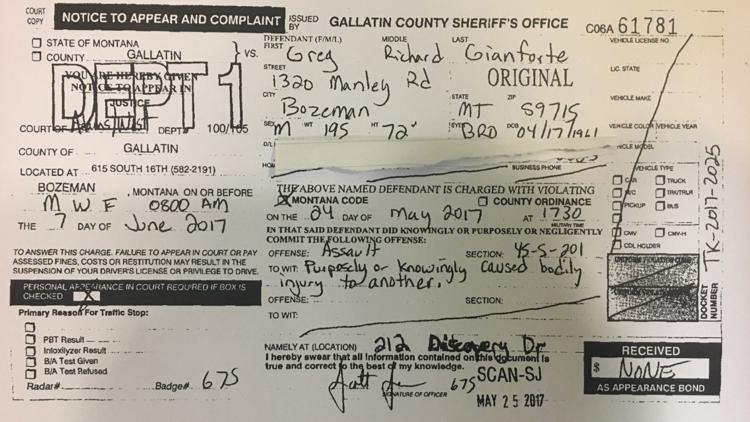 COURT COPY
NOTICE TO APPEAR AND COMPLAINT
ISSUED BY
GALLATIN COUNTY SHERIFF'S OFFICE
C06A 61781
STATE OF MONTANA
COUNTY GALLATIN
VS.
YOU ARE HEREBY GIVEN
NOTICE TO APPEAR IN
JUSTICE
DEPT 1
COURT OF
DEPT# 100/105
COUNTY OF GALLATIN
LOCATED AT 615 SOUTH 16TH (582-2191)
BOZEMAN, MONTANA ON OR BEFORE
M W F 0800 AM
THE 7 DAY OF June 2017
TO ANSWER THIS CHARGE. FAILURE TO APPEAR IN COURT OR PAY
ASSESSED FINES, COSTS OR RESTITUTION MAY RESULT IN THE
SUSPENSION OF YOUR DRIVER'S LICENSE OR PRIVILEGE TO DRIVE.
PERSONAL APPEARANCE IN COURT REQUIRED IF BOX IS
CHECKED X
Primary Reason For Traffic Stop:
PBT Result
Intoxilyzer Result
B/A Test Given
B/A Test Refused
Radar# Badge# 675
DEFENDANT (F/M/L)
FIRST MIDDLE LAST
Greg Richard Gianforte
STREET
1320 Manley Rd
ORIGINAL
CITY STATE ZIP
Bozeman MT 59715
SEX M WT 195 HT 72" EYE BRO DOB 04/17/1961
D/L#
BUSINESS PHONE
THE ABOVE NAMED DEFENDANT IS CHARGED WITH VIOLATING
X MONTANA CODE COUNTY ORDINANCE
ON THE 24 DAY OF May 2017 AT 1730
MILITARY TIME
IN THAT SAID DEFENDANT DID KNOWINGLY OR PURPOSELY OR NEGLIGENTLY
COMMIT THE FOLLOWING OFFENSE:
OFFENSE: Assault SECTION: 45-5-201
TO WIT: Purposly or knowingly caused bodily
injury to another.
OFFENSE: SECTION:
TO WIT:
NAMELY AT (LOCATION) 212 Discovery Dr
I hereby swear that all information contained on this document is
true and correct to the best of my knowledge.
675
SIGNATURE OF OFFICER
SCAN-SJ
MAY 25 2017
VEHICLE LICENSE NO.
LIC. STATE
VEHICLE MAKE
VEHICLE COLOR VEHICLE YEAR
VEHICLE MODEL
VEHICLE TYPE
CAR TRUCK
M/C TRK/TRLR
PICKUP BUS
CMV CMV-H
CDL HOLDER
DOCKET NUMBER
TK-2017-2025
RECEIVED
$ NONE
AS APPEARANCE BOND